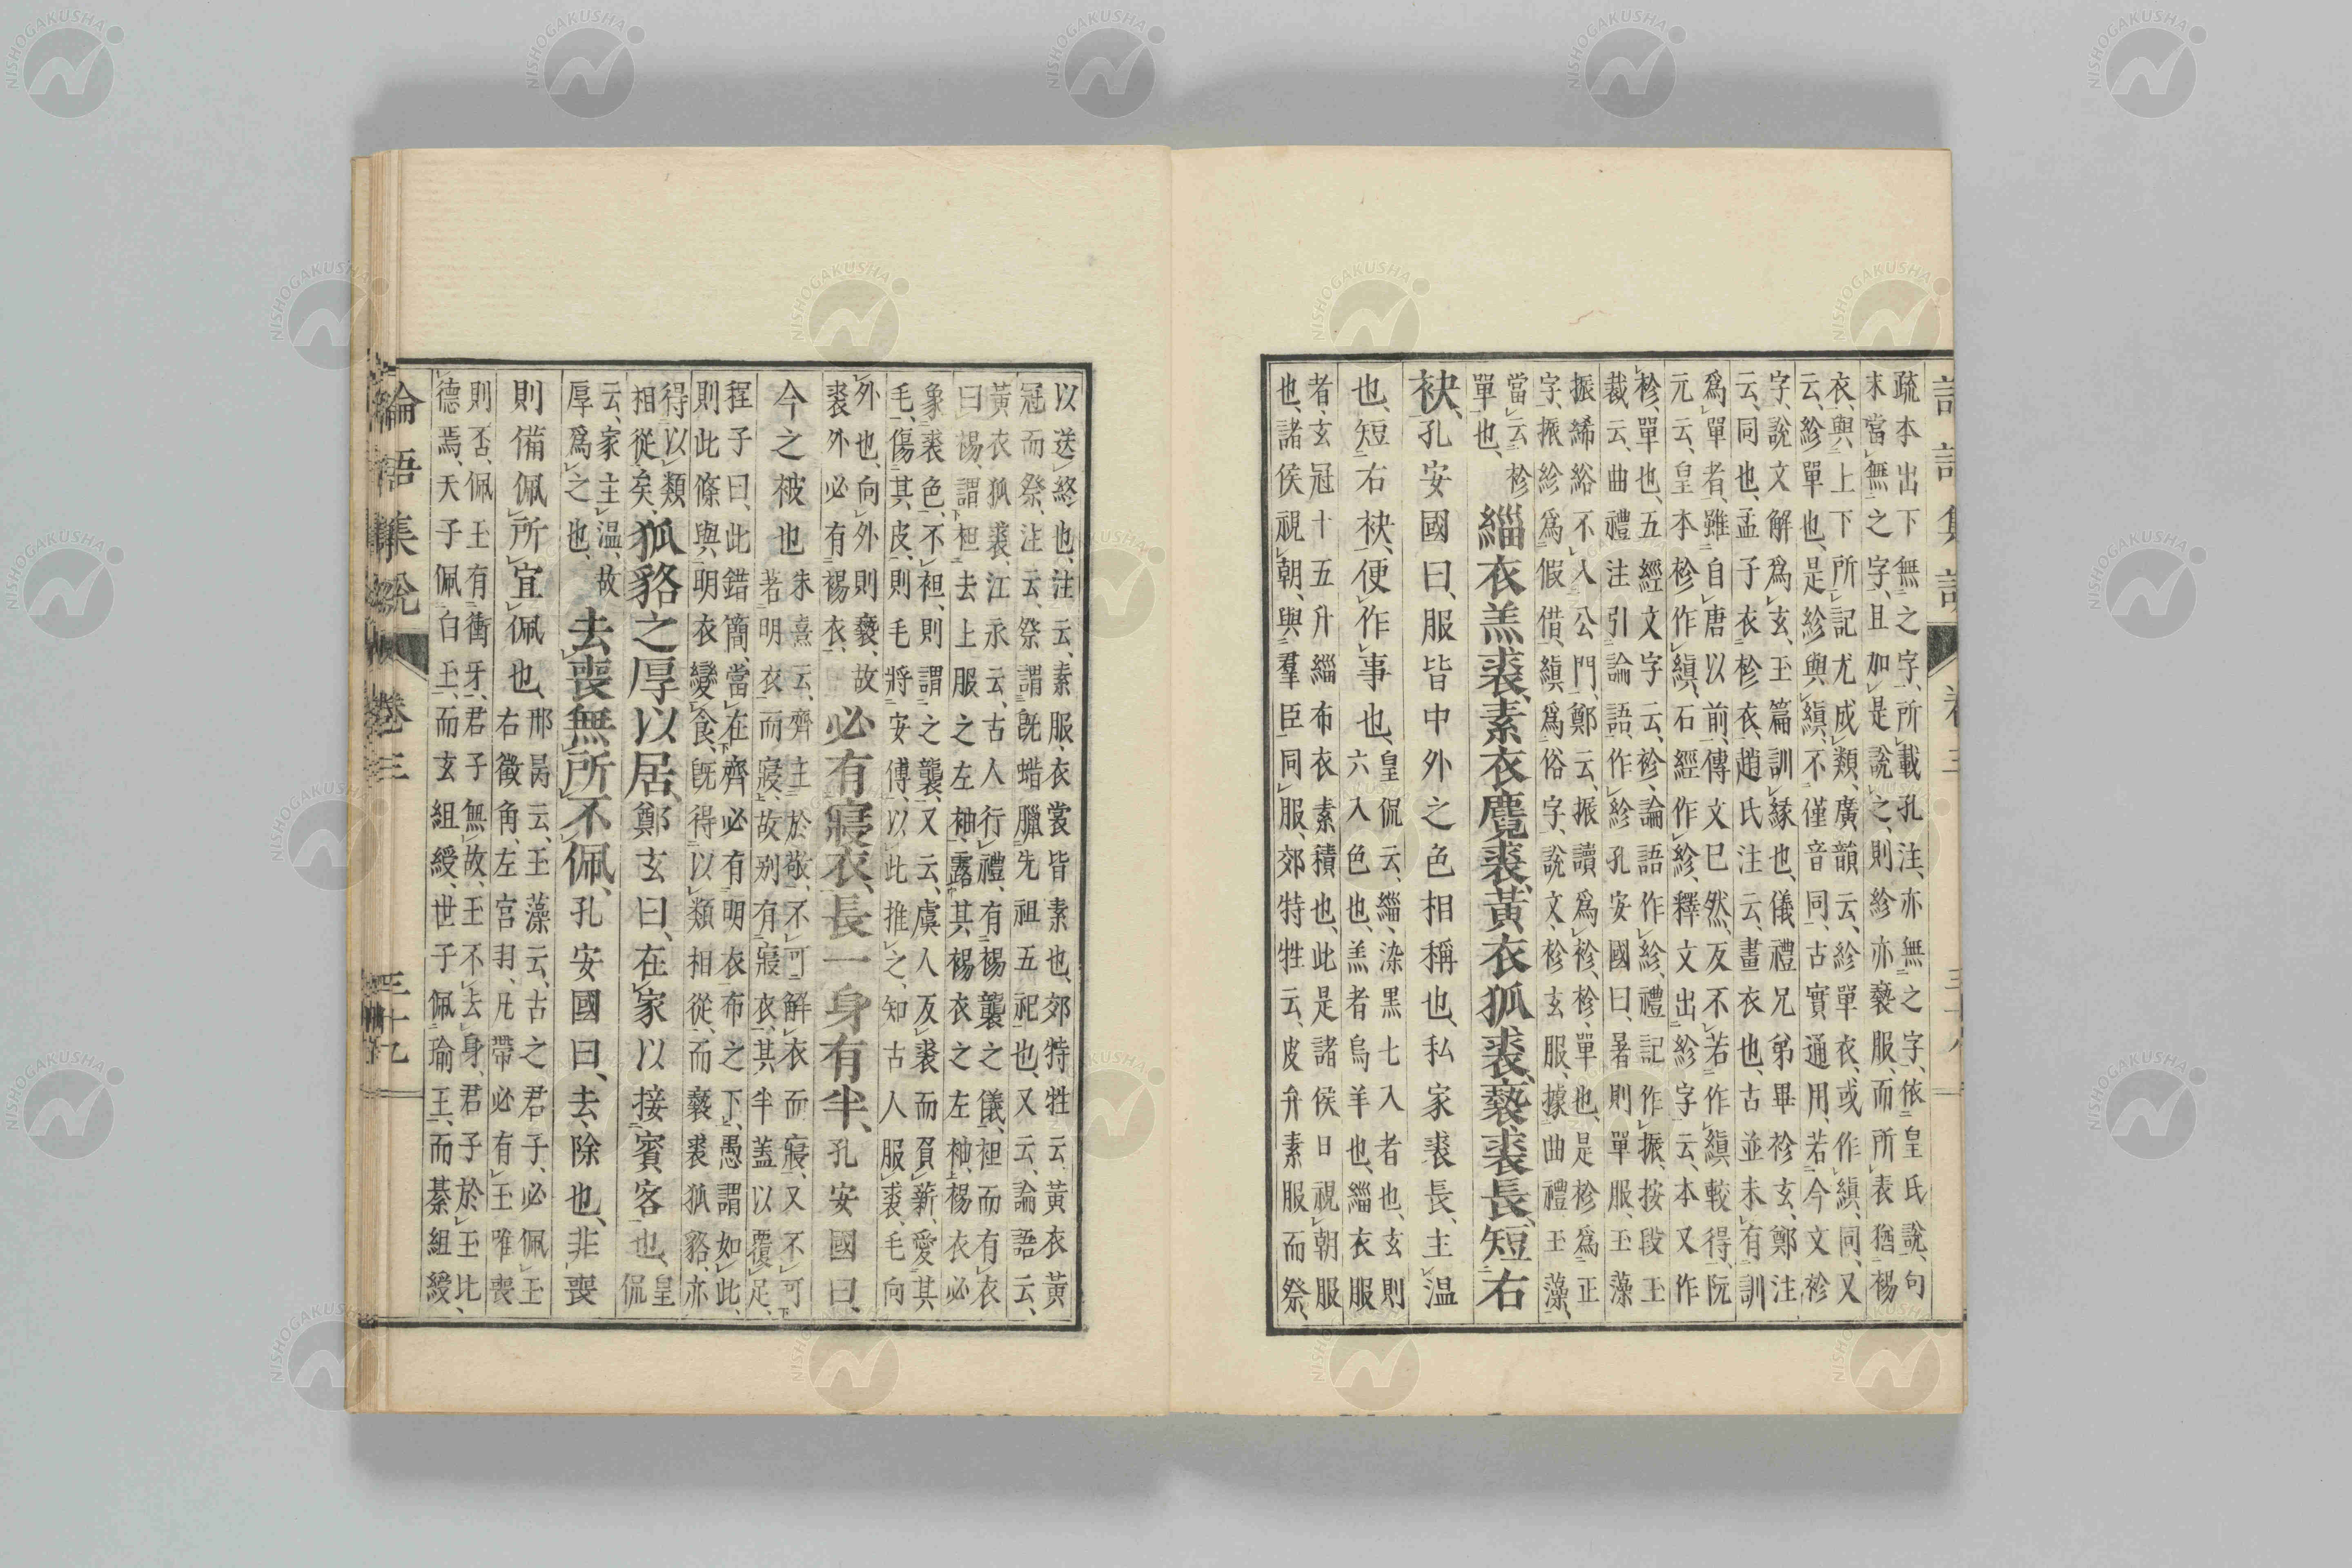 疏本出下無之字、所載孔注、亦無之字、依皇氏說、句
末當無之字、且如是說之、則紾亦褻服、而所表猶裼
衣、與上下所記尤成類、廣韻云、紾單衣、或作縝、同、又
云、紾單也、是紾與縝、不僅音同、古實通用、若今文袗
字、說文解爲玄、玉篇訓緣也、儀禮兄弟畢袗玄、鄭注
云、同也、孟子衣袗衣、趙氏注云、畫衣也、古並未有訓
爲單者、雖自唐以前、傳文已然、反不若作縝較得、阮
元云、皇本袗作縝、石經作紾、釋文出紾字云、本又作
袗、單也、五經文字云、袗、論語作紾、禮記作振、按段玉
裁云、曲禮注引論語、作紾孔安國曰、暑則單服、玉藻
振絺綌不入公門、鄭云、振讀爲袗、袗、單也、是袗爲正
字、振紾爲假借、縝爲俗字、說文、袗玄服、據曲禮玉藻、
當云袗
單也、
緇衣羔裘、素衣麑裘、黃衣狐裘、褻裘長、短右
袂、孔安國曰、服皆中外之色相稱也、私家裘長、主温
也、短右袂、便作事也、
皇侃云、緇、染黑七入者也、玄則
六入色也、羔者烏羊也、緇衣服
者、玄冠十五升緇布衣素積也、此是諸侯日視朝服
也、諸侯視朝、與羣臣同服、郊特牲云、皮弁素服而祭、
以送終也、注云、素服、衣裳皆素也、郊特牲云、黃衣黃
冠而祭、注云、祭謂旣蜡臘先祖五祀也、又云、論語云、
黃衣狐裘、江永云、古人行禮、有裼襲之儀、袒而有衣
曰裼、謂袒去上服之左袖、露其裼衣之左袖、裼衣必
象裘色、不袒、則謂之襲、又云、虞人反裘而負薪、愛其
毛、傷其皮、則毛將安傅、以此推之、知古人服裘、毛向
外也、向外則褻、故
裘外必有裼衣、
必有寢衣、長一身有半、孔安國曰、
今之被也
朱熹云、齊主於敬、不可解衣而寢、又不可
若明衣而寢、故別有寢衣、其半蓋以覆足、
程子曰、此錯簡、當在齊必有明衣布之下、愚謂如此、
則此條與明衣變食、旣得以類相從、而褻裘狐貉、亦
得以類
相從矣、
狐貉之厚以居、鄭玄曰、在家以接賓客也、
皇侃
云、家主温、故
厚爲之也、
去喪無所不佩、孔安國曰、去、除也、非喪
則備佩所宜佩也、
邢昺云、玉藻云、古之君子、必佩玉
右徵角、左宮羽、凡帶必有玉唯喪
則否、佩玉有衝牙、君子無故、玉不去身、君子於玉比
德焉、天子佩白玉、而玄組綬、世子佩瑜玉、而綦組綬
論語集說 卷三 三十九